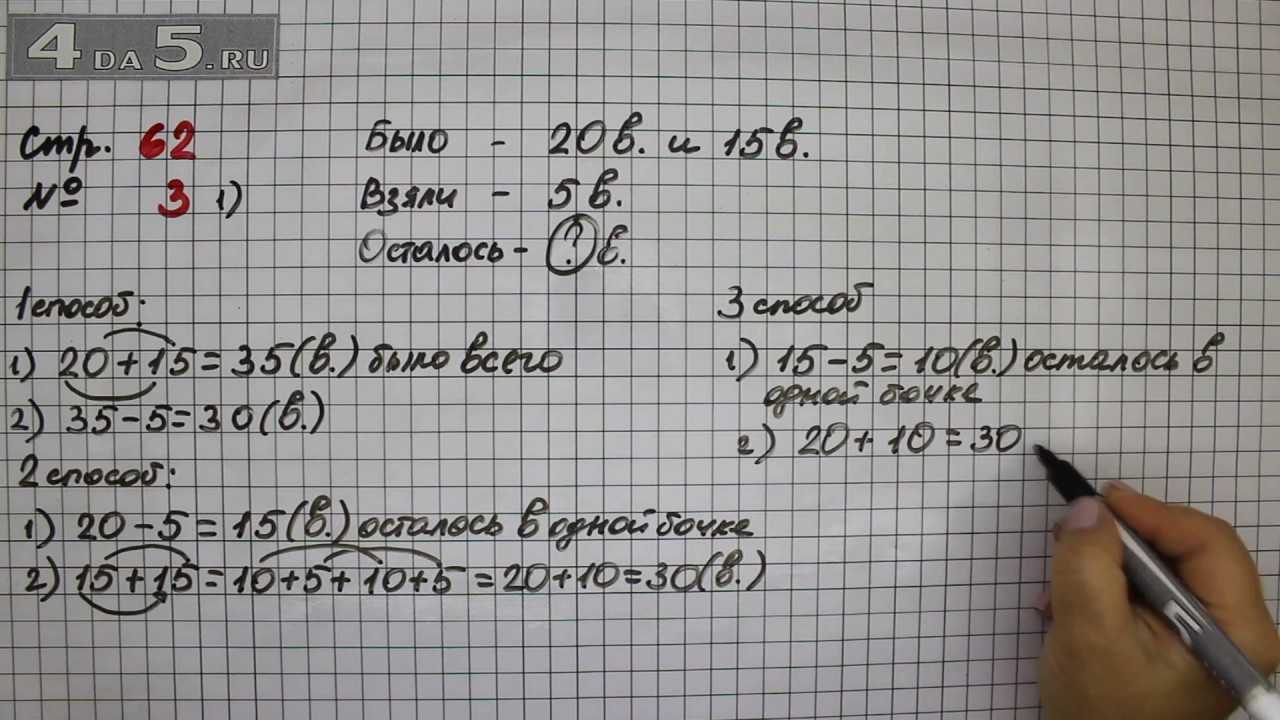 4DA5.RU
Стр. 62
№ 3 1)
Было - 20 в. и 15 в.
Взяли - 5 в.
Осталось - ? в.
1 способ:
1) 20 + 15 = 35 (в.) было всего
2) 35 - 5 = 30 (в.)
2 способ:
1) 20 - 5 = 15 (в.) осталось в одной бочке
2) 15 + 15 = 10 + 5 + 10 + 5 = 20 + 10 = 30 (в.)
3 способ
1) 15 - 5 = 10 (в.) осталось в
одной бочке
2) 20 + 10 = 30